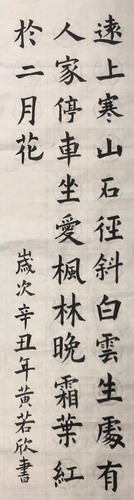 遠上寒山石徑斜白雲生處有
人家停車坐愛楓林晚霜葉紅
於二月花
歲次辛丑年黃若欣書